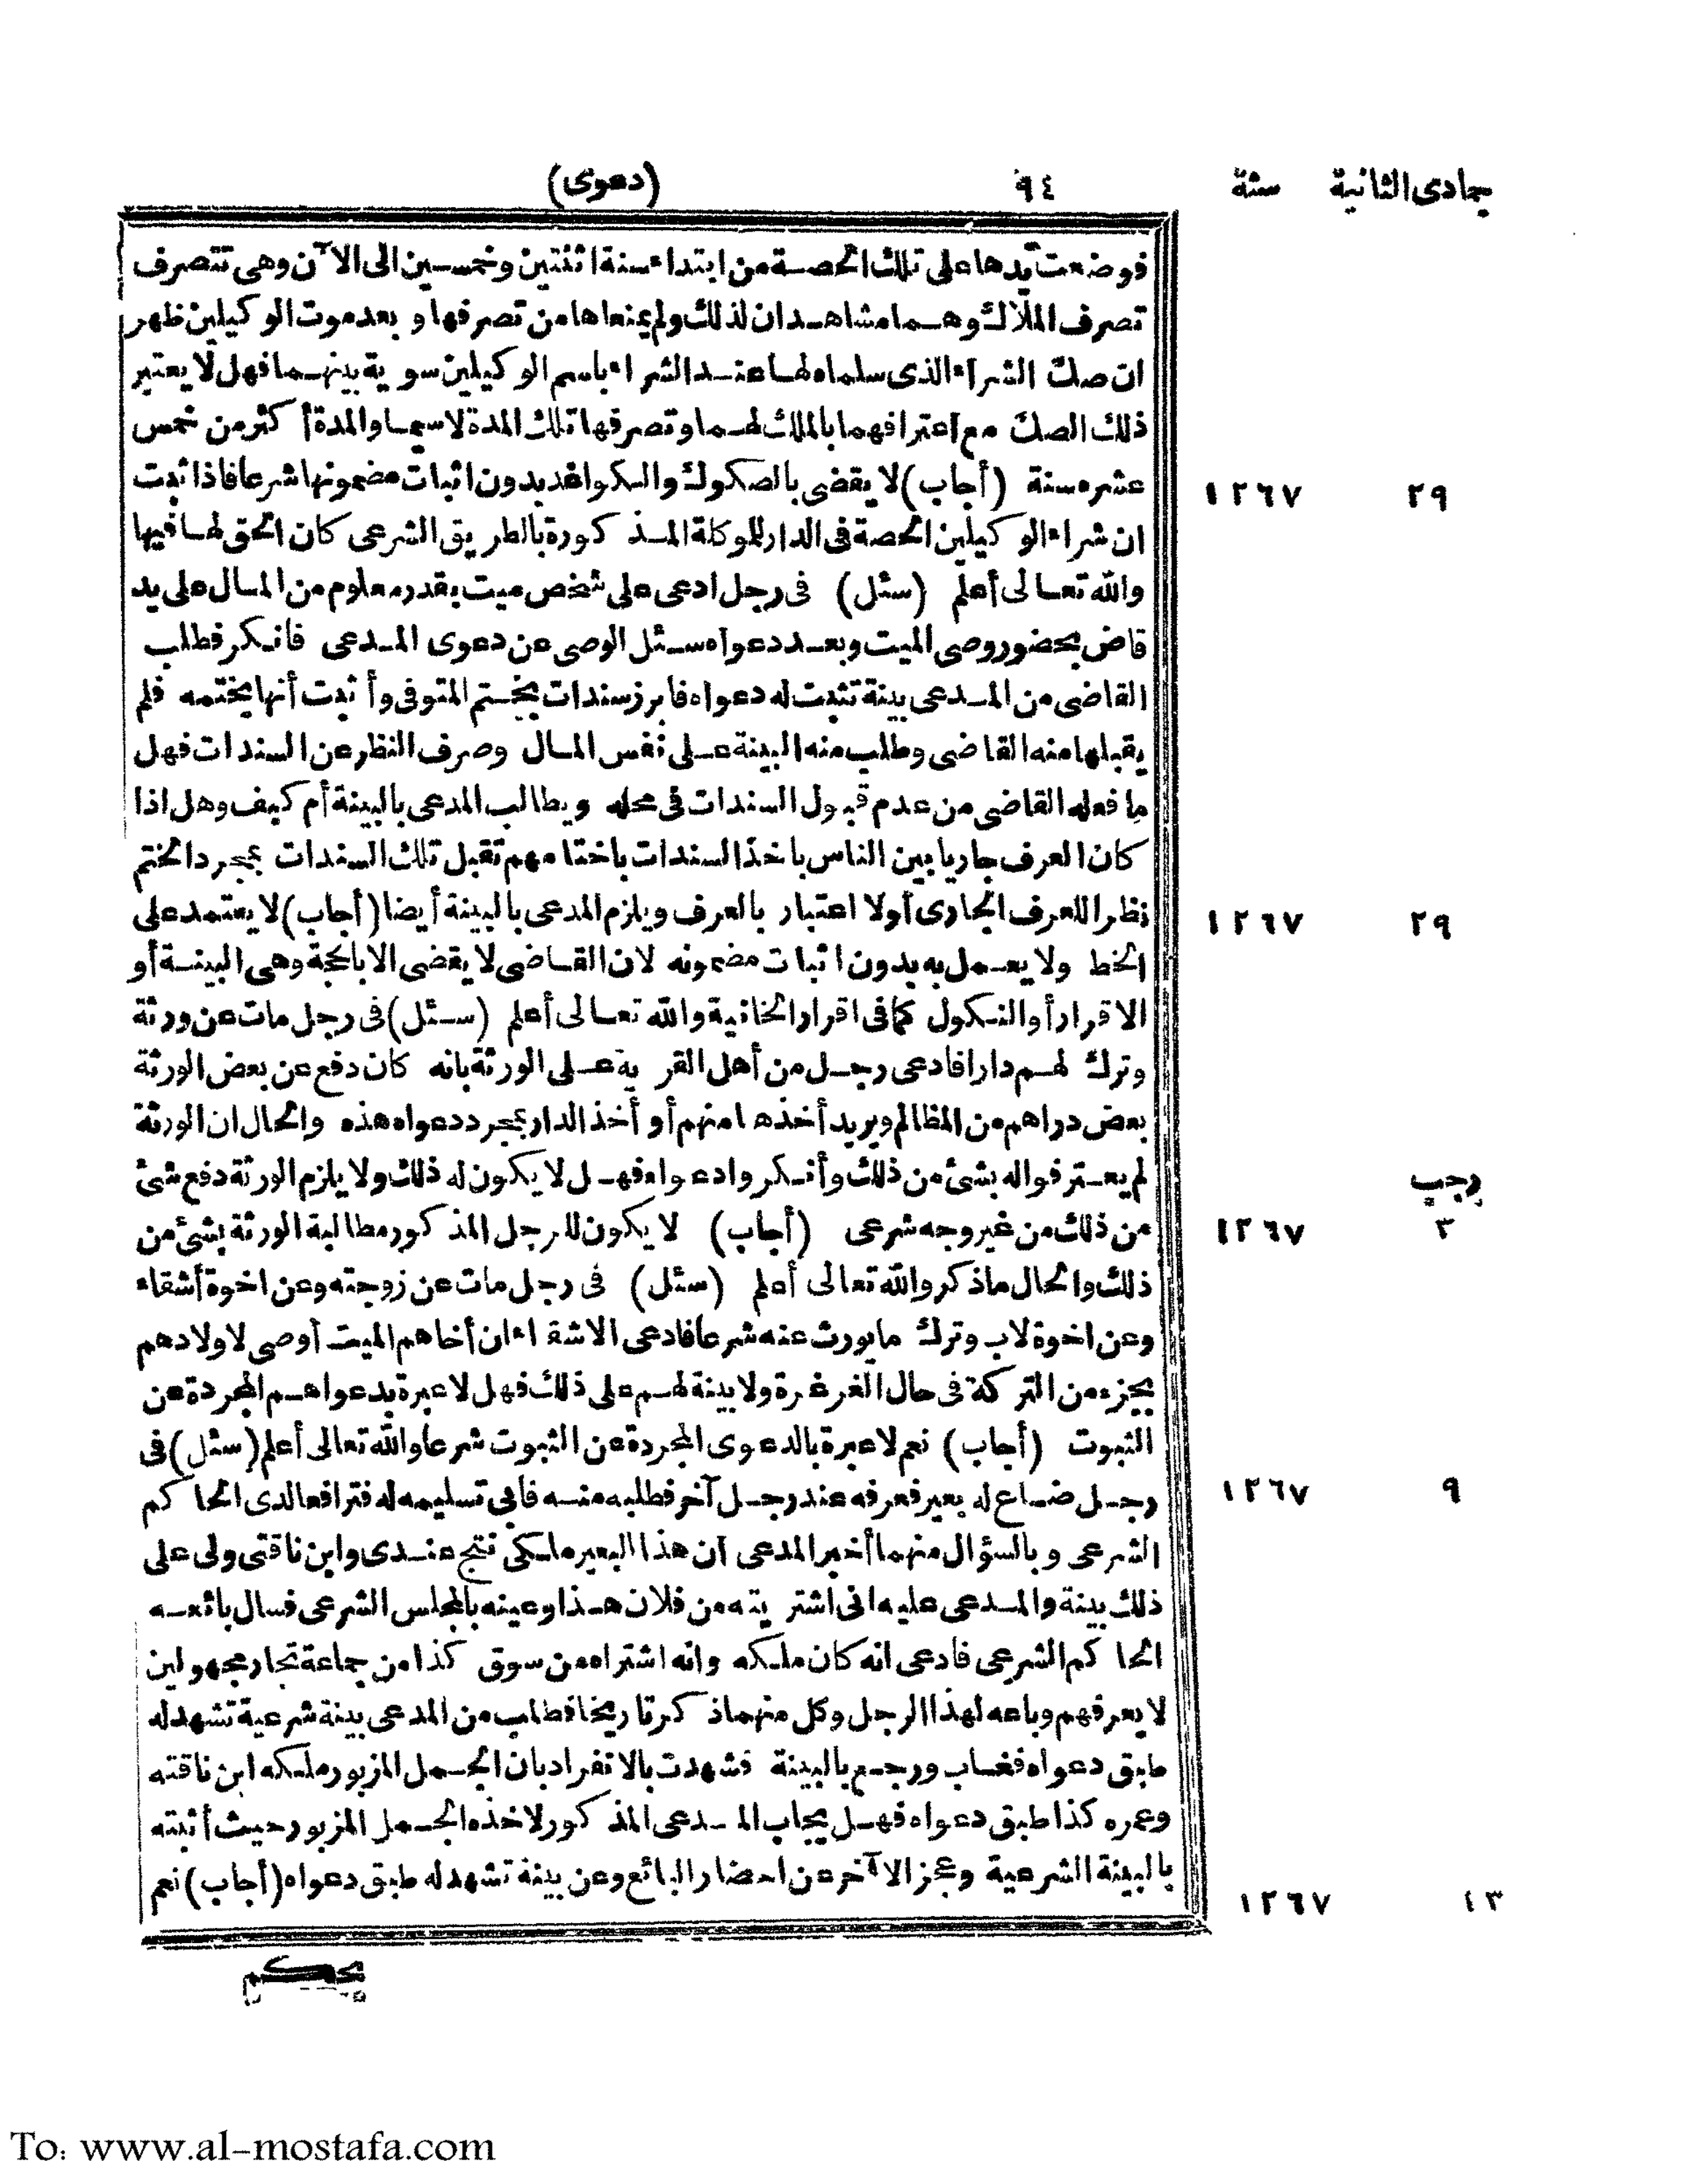 جمادى الثانية سنة ٩٤ (دعوى)
فوضعت يدها على تلك الحصة من ابتداء سنة اثنتين وخمسين الى الآن وهى تتصرف
تصرف الملاك وهما مشاهدان لذلك ولم يمنعاها من تصرفها وبعد موت الوكيلين ظهر
ان صك الشراء الذى سلماه لها عند الشراء باسم الوكيلين سوية بينهما فهل لا يعتبر
ذلك الصك مع اعترافهما بالملك لهما وتصرفها تلك المدة لاسيما والمدة أكثر من خمس
عشره سنة (أجاب) لا يقضى بالصكوك والكواغد بدون اثبات مضمونها شرعا فاذا ثبت
٢٩ ١٢٦٧
ان شراء الوكيلين الحصة فى الدار للموكلة المذكورة بالطريق الشرعى كان الحق لها فيها
والله تعالى أعلم (سئل) فى رجل ادعى على شخص ميت بقدر معلوم من المال على يد
قاض بحضور وصى الميت وبعد دعواه سئل الوصى عن دعوى المدعى فانكر فطلب
القاضى من المدعى بينة تثبت له دعواه فابرز سندات بختم المتوفى وأثبت أنها بختمه فلم
يقبلها منه القاضى وطلب منه البينة على نفس المال وصرف النظر عن السندات فهل
ما فعله القاضى من عدم قبول السندات فى محله ويطالب المدعى بالبينة أم كيف وهل اذا
كان العرف جاريا بين الناس باخذ السندات باختامهم تقبل تلك السندات بمجرد الختم
نظرا للعرف الجارى أولا اعتبار بالعرف ويلزم المدعى بالبينة أيضا (أجاب) لا يعتمد على
٢٩ ١٢٦٧
الخط ولا يعمل به بدون اثبات مضمونه لان القاضى لا يقضى الا بالحجة وهى البينة أو
الاقرار أو النكول كما فى اقرار الخانية والله تعالى أعلم (سئل) فى رجل مات عن ورثة
وترك لهم دارا فادعى رجل من أهل القرية على الورثة بانه كان دفع عن بعض الورثة
بعض دراهم من المظالم ويريد أخذها منهم أو أخذ الدار بمجرد دعواه هذه والحال ان الورثة
لم يعترفوا له بشئ من ذلك وأنكروا دعواه فهل لا يكون له ذلك ولا يلزم الورثة دفع شئ
رجب
من ذلك من غير وجه شرعى (أجاب) لا يكون للرجل المذكور مطالبة الورثة بشئ من
٣ ١٢٦٧
ذلك والحال ما ذكر والله تعالى أعلم (سئل) فى رجل مات عن زوجته وعن اخوة أشقاء
وعن اخوة لاب وترك ما يورث عنه شرعا فادعى الاشقاء ان أخاهم الميت أوصى لاولادهم
بجزء من التركة فى حال الغرغرة ولا بينة لهم على ذلك فهل لا عبرة بدعواهم المجردة عن
الثبوت (أجاب) نعم لا عبرة بالدعوى المجردة عن الثبوت شرعا والله تعالى أعلم (سئل) فى
رجل ضاع له بعير فعرفه عند رجل آخر فطلبه منه فابى تسليمه له فترافعا لدى الحاكم
٩ ١٢٦٧
الشرعى وبالسؤال منهما أخبر المدعى ان هذا البعير ملكى نتج عندى وابن ناقتى ولى على
ذلك بينة والمدعى عليه انى اشتريته من فلان هذا وعينه بالمجلس الشرعى فسال بائعه
الحاكم الشرعى فادعى انه كان ملكه وانه اشتراه من سوق كذا من جماعة تجار مجهولين
لا يعرفهم وباعه لهذا الرجل وكل منهما ذكر تاريخا فطلب من المدعى بينة شرعية تشهد له
طبق دعواه فغاب ورجع بالبينة فشهدت بالانفراد بان الجمل المزبور ملكه ابن ناقته
وعمره كذا طبق دعواه فهل يجاب المدعى المذكور لاخذه الجمل المزبور حيث أثبته
بالبينة الشرعية وعجز الآخر عن احضار البائع وعن بينة تشهد له طبق دعواه (أجاب) نعم
١٣ ١٢٦٧
يحكم
To: www.al-mostafa.com